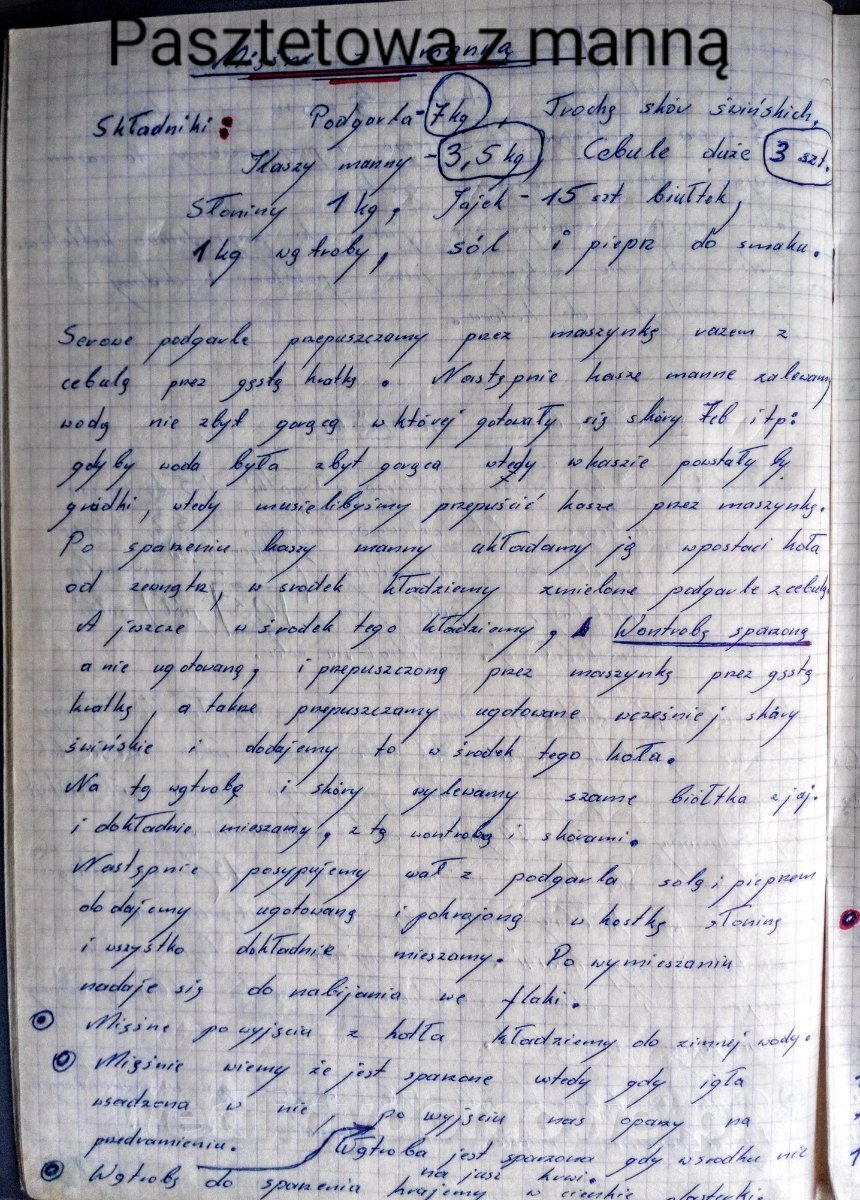 Pasztetowa z manną
Mięsne z manną
Składniki: Podgarla - 7 kg, Trochę skór świńskich,
Kaszy manny - 3,5 kg, Cebule duże 3 szt.
Słoniny 1 kg, Jajek - 15 szt białtek,
1 kg wątroby, sól i piepr do smaku.
Surowe podgarle przepuszczamy przez maszynkę razem z
cebulą przez gęstą kratkę. Następnie kasze manne zalewamy
wodą nie zbyt gorącą w której gotowały się skóry łeb itp:
gdyby woda była zbyt gorąca wtedy w kaszie powstały by
grudki, wtedy musielibyśmy przepuścić kasze przez maszynkę.
Po sparzeniu kaszy manny układamy ją wpostaci koła
od zewnątrz, w srodek kładziemy zmielone podgarle z cebulą.
A jeszcze w środek tego kładziemy, Wontrobę sparzoną
a nie ugotowaną, i przepuszczoną przez maszynkę przez gęstą
kratkę, a także przepuszczamy ugotowane wcześniej skóry
świńskie i dodajemy to w środek tego koła.
Na tą wątrobę i skóry wylewamy szame biółtka z jaj.
i dokładnie mieszamy, z tą wontrobą i skórami.
Następnie posypujemy wał z podgarla solą i pieprzem
dodajemy ugotowaną i pokrajoną w kostkę słoninę
i wszystko dokładnie mieszamy. Po wymieszaniu
nadaje się do nabijania we flaki.
Mięsne po wyjściu z kotła kładziemy do zimnej wody.
Mięśnie wiemy że jest sparzone wtedy gdy igła
wsadzona w nie, po wyjściu nas oparzy na
przedramieniu. Wątroba jest sparzona gdy wśrodku nie
na już krwi.
Wątrobę do sparzenia krajemy w cienkie plasterki